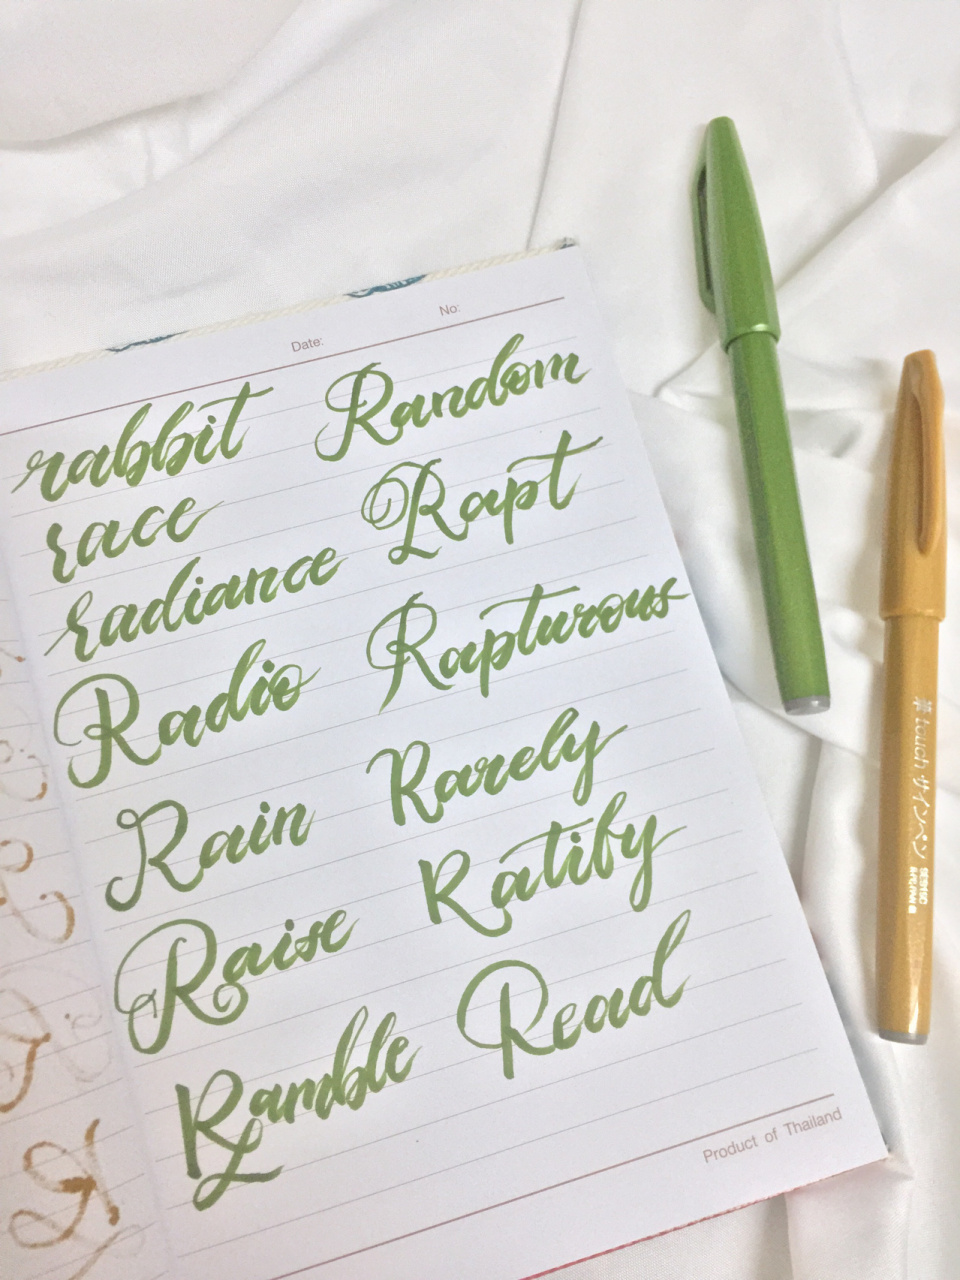 Date: No:
rabbit Random
race Rapt
radiance Rapturous
Radio Rarely
Rain Ratify
Raise Read
Ramble
Product of Thailand
touch サインペン
SES15C